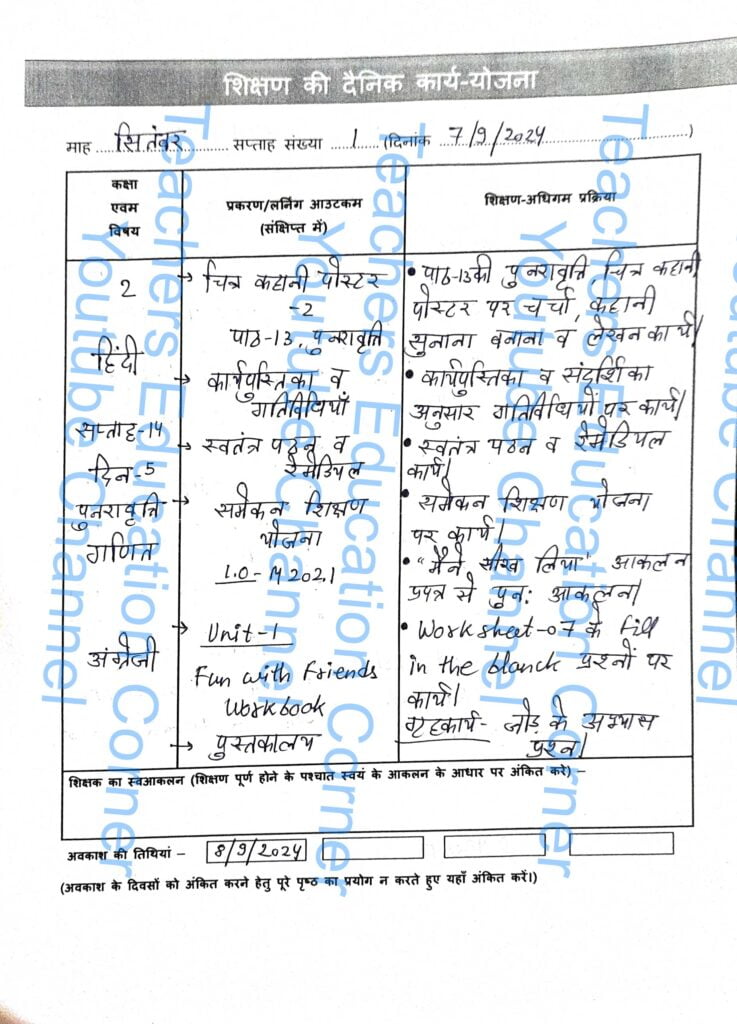 शिक्षण की दैनिक कार्य-योजना
माह सितंबर सप्ताह संख्या 1 (दिनांक 7/9/2024)
कक्षा एवम विषय
प्रकरण/लर्निंग आउटकम (संक्षिप्त में)
शिक्षण-अधिगम प्रक्रिया
2
हिंदी
सप्ताह-14
दिन-5
पुनरावृत्ति
गणित
अंग्रेजी
→ चित्र कहानी पोस्टर
-2
पाठ-13, पुनरावृत्ति
→ कार्यपुस्तिका व
गतिविधियाँ
→ स्वतंत्र पठन व
रेमेडियल
→ समेकन शिक्षण
योजना
L.O-M 202.1
→ Unit-1
Fun with Friends
Workbook
→ पुस्तकालय
• पाठ-13 की पुनरावृत्ति, चित्र कहानी
पोस्टर पर चर्चा, कहानी
सुनाना बनाना व लेखन कार्य।
• कार्यपुस्तिका व संदर्शिका
अनुसार गतिविधियों पर कार्य।
• स्वतंत्र पठन व रेमेडियल
कार्य।
• समेकन शिक्षण योजना
पर कार्य।
• "मैंने सीख लिया" आकलन
प्रपत्र से पुन: आकलन।
• Worksheet-07 के fill
in the blanck प्रश्नों पर
कार्य।
गृहकार्य- जोड़ के अभ्यास
प्रश्न।
शिक्षक का स्वआकलन (शिक्षण पूर्ण होने के पश्चात स्वयं के आकलन के आधार पर अंकित करे) –
अवकाश की तिथियां – 8/9/2024
(अवकाश के दिवसों को अंकित करने हेतु पूरे पृष्ठ का प्रयोग न करते हुए यहाँ अंकित करें।)
Teachers Education Corner
Youtube Channel
Teachers Education Corner
Youtube Channel
Teachers Education Corner
Youtube Channel